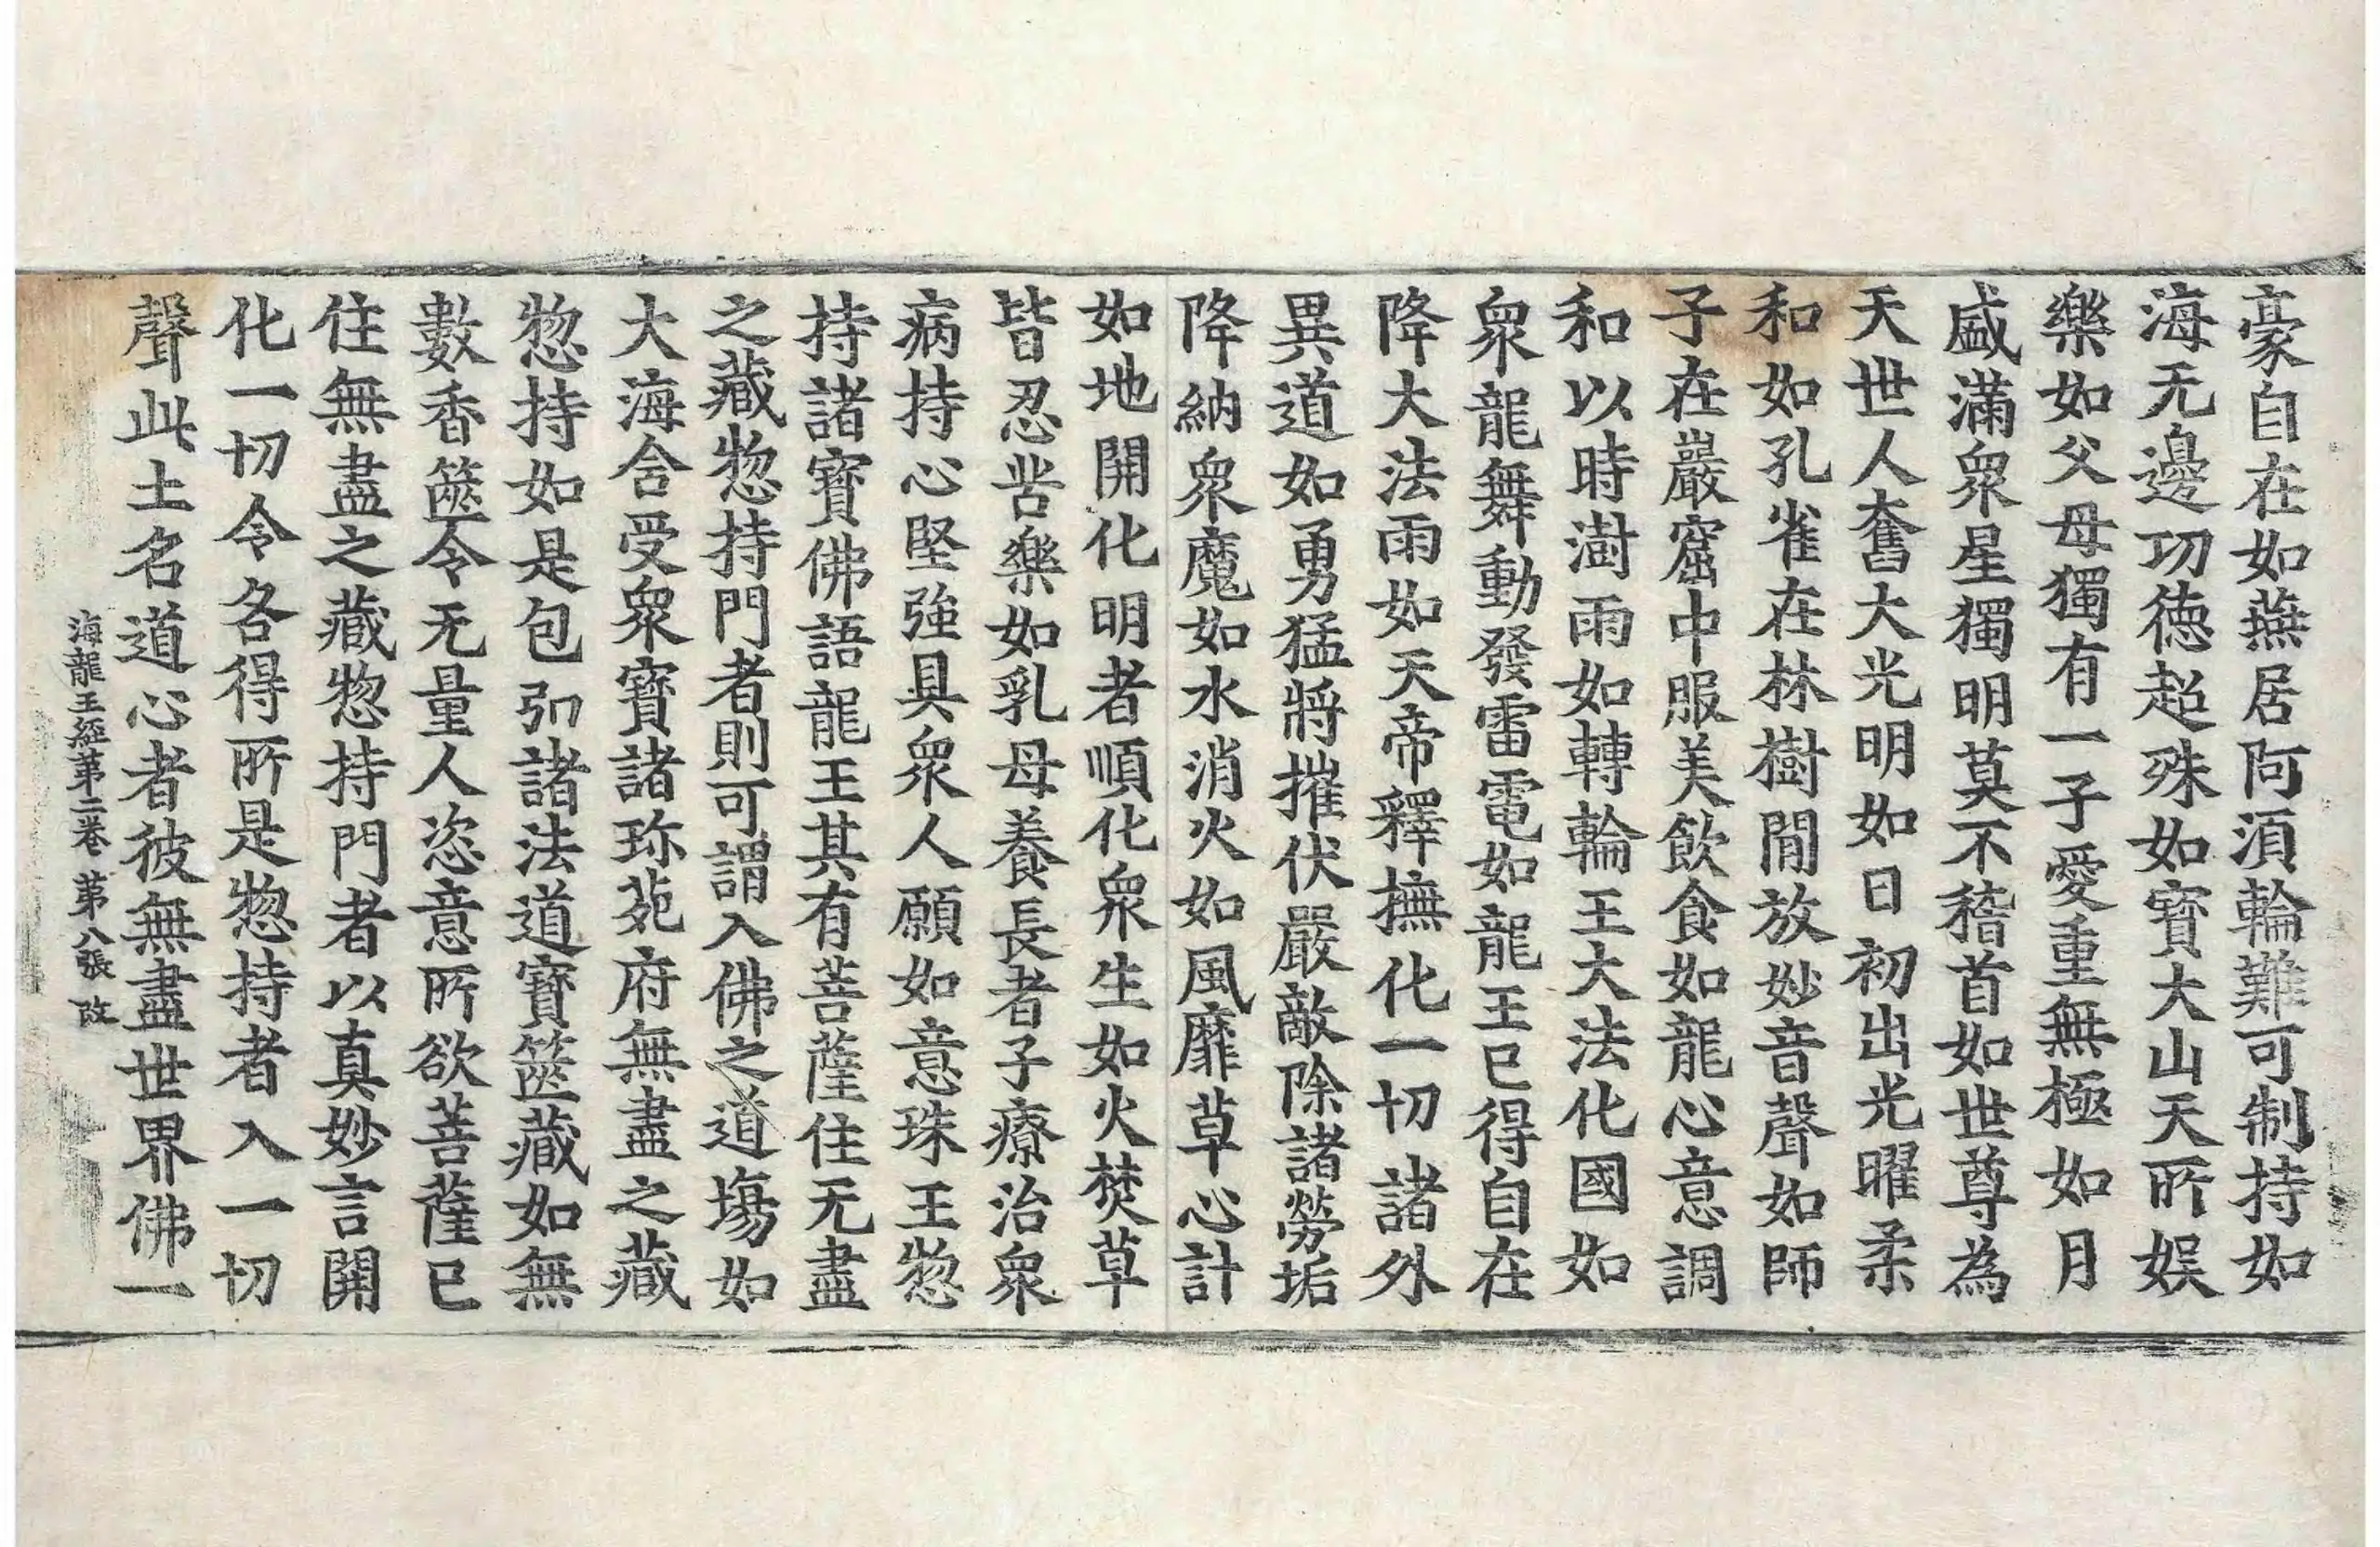 豪自在如燕居阿須輪難可制持如
海无邊功德超殊如寶大山天所娛
樂如父母獨有一子愛重無極如月
盛滿衆星獨明莫不稽首如世尊為
天世人奮大光明如日初出光曜柔
和如孔雀在林樹閒放妙音聲如師
子在巖窟中服美飲食如龍心意調
和以時澍雨如轉輪王大法化國如
衆龍舞動發雷電如龍王已得自在
降大法雨如天帝釋撫化一切諸外
異道如勇猛將摧伏嚴敵除諸勞垢
降納衆魔如水消火如風靡草心計
如地開化明者順化衆生如火焚草
皆忍苦樂如乳母養長者子療治衆
病持心堅強具衆人願如意珠王惣
持諸寶佛語龍王其有菩薩住无盡
之藏惣持門者則可謂入佛之道場如
大海含受衆寶諸珎苑府無盡之藏
惣持如是包弘諸法道寶篋藏如無
數香篋令无量人恣意所欲菩薩已
住無盡之藏惣持門者以真妙言開
化一切令各得所是惣持者入一切
聲此土名道心者彼無盡世界佛一
海龍王經第二卷 第八張 改